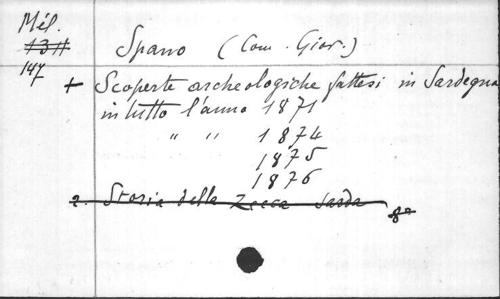 Mél.
1311
147
Spano (Com. Giov.)
+ Scoperte archeologiche fattesi in Sardegna
in tutto l'anno 1871
" " 1874
1875
1876
2. Storia della Zecca Sarda
8º